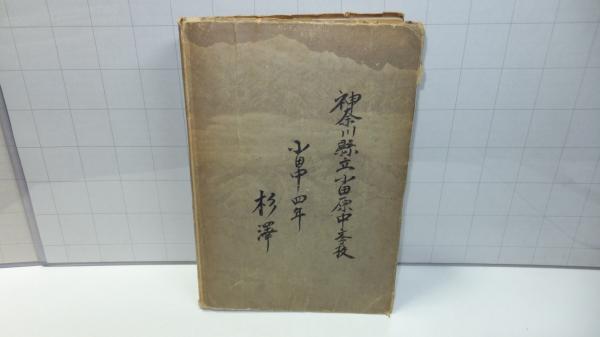 神奈川縣立小田原中学校
小田中四年
杉澤